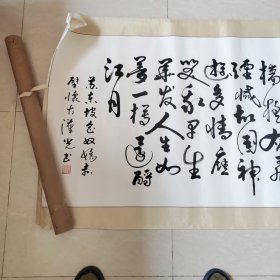 檣櫓灰飛
煙滅故國神
遊多情應
笑我早生
華发人生如
夢一樽還酹
江月
蘇東坡念奴嬌赤
壁懷古漢光書